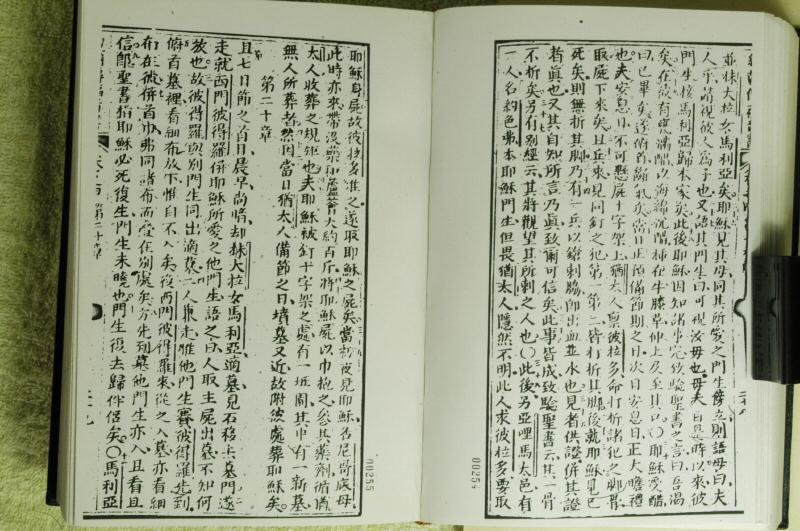 並妹大拉女馬利亞矣耶穌見其母同其所愛之門生傍立則語母曰夫
人乎請視彼人為子也又語其門生曰可視汝母也母夫自是時以來彼
門生接馬利亞歸本家矣此後耶穌因知諸事完致驗聖書之言曰吾渴
矣在彼有甕滿醋以海絨沉醋插在牛膝草仲上及至其口〇耶穌受醋
曰已畢矣遂俯首斷氣矣當日正預備節期之日次日安息日正大瞻禮
也夫安息日不可懸屍十字架上猶太人稟彼拉多命打折諸犯之脚骨
取屍下來矣且兵來見同釘之犯第一第二皆打折其脚後就耶穌見已
死矣則無折其脚乃有一兵以鎗刺脇卽出血並水也見者供證併其證
者眞也又其自知所言乃眞致爾可信矣此事皆成致驗聖書云其一骨
不折矣另有別經云其將觀望其所刺之人也〇此後另亞哩馬太邑有
一人名約色弗本耶穌門生但畏猶太人隱然不明此人求彼拉多要取
00254
耶穌身屍故彼拉多准之遂取耶穌之屍矣當初夜見耶穌者尼哥底母
此時亦來帶沒藥和蘆薈大約百斤將耶穌屍以巾抱之參其藥劑循猶
太人收葬之規矩也夫耶穌被釘十字架之處有一坵園其中有一新墓
無人所葬者然因當日猶太人備節之日墳墓又近故附彼處葬耶穌矣
第二十章
且七日節之首日晨早尚暗却妹大拉女馬利亞適墓見石移去墓門遂
走就西門彼得羅併耶穌所愛之他門生語之曰人取主屍出墓不知何
放也故彼得羅與別門生同出適墓二人兼走惟他門生賽彼得羅先到
俯首墓裡看細布放下惟自不入矣後西門彼得羅來從之入墓亦看細
布在彼併首巾弗同諸布而叠在別處矣方先到墓他門生亦入且看且
信卽聖書指耶穌必死復生門生未曉也門生復去歸伴侶矣〇馬利亞
第二十章
00255